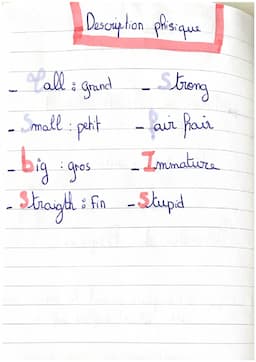 Description phisique
- Tall : grand - Strong
- Small : petit - fair hair
- big : gros - Immature
- Straigth : Fin - Stupid